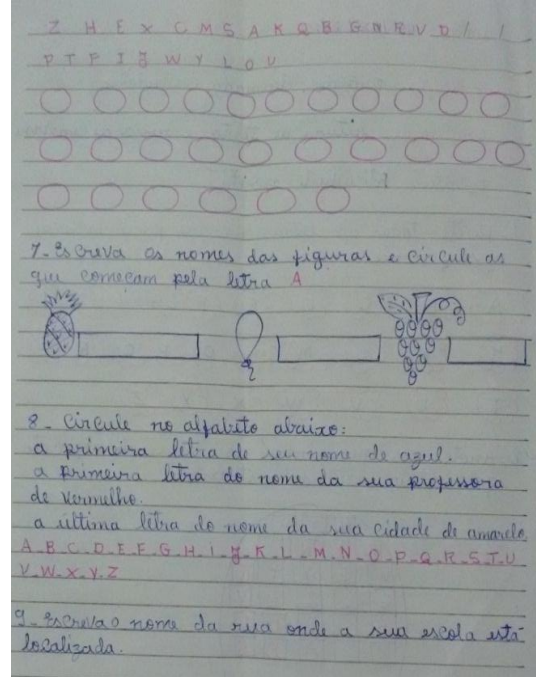 Z H E X C M S A K Q B G N R V D / /
P T F I J W Y L O U
7- Escreva os nomes das figuras e circule as
que começam pela letra A
8- Circule no alfabeto abaixo:
a primeira letra de seu nome de azul.
a primeira letra do nome da sua professora
de vermelho.
a última letra do nome da sua cidade de amarelo.
A-B-C-D-E-F-G-H-I-J-K-L-M-N-O-P-Q-R-S-T-U
V-W-X-Y-Z
9- Escreva o nome da rua onde a sua escola está
localizada.